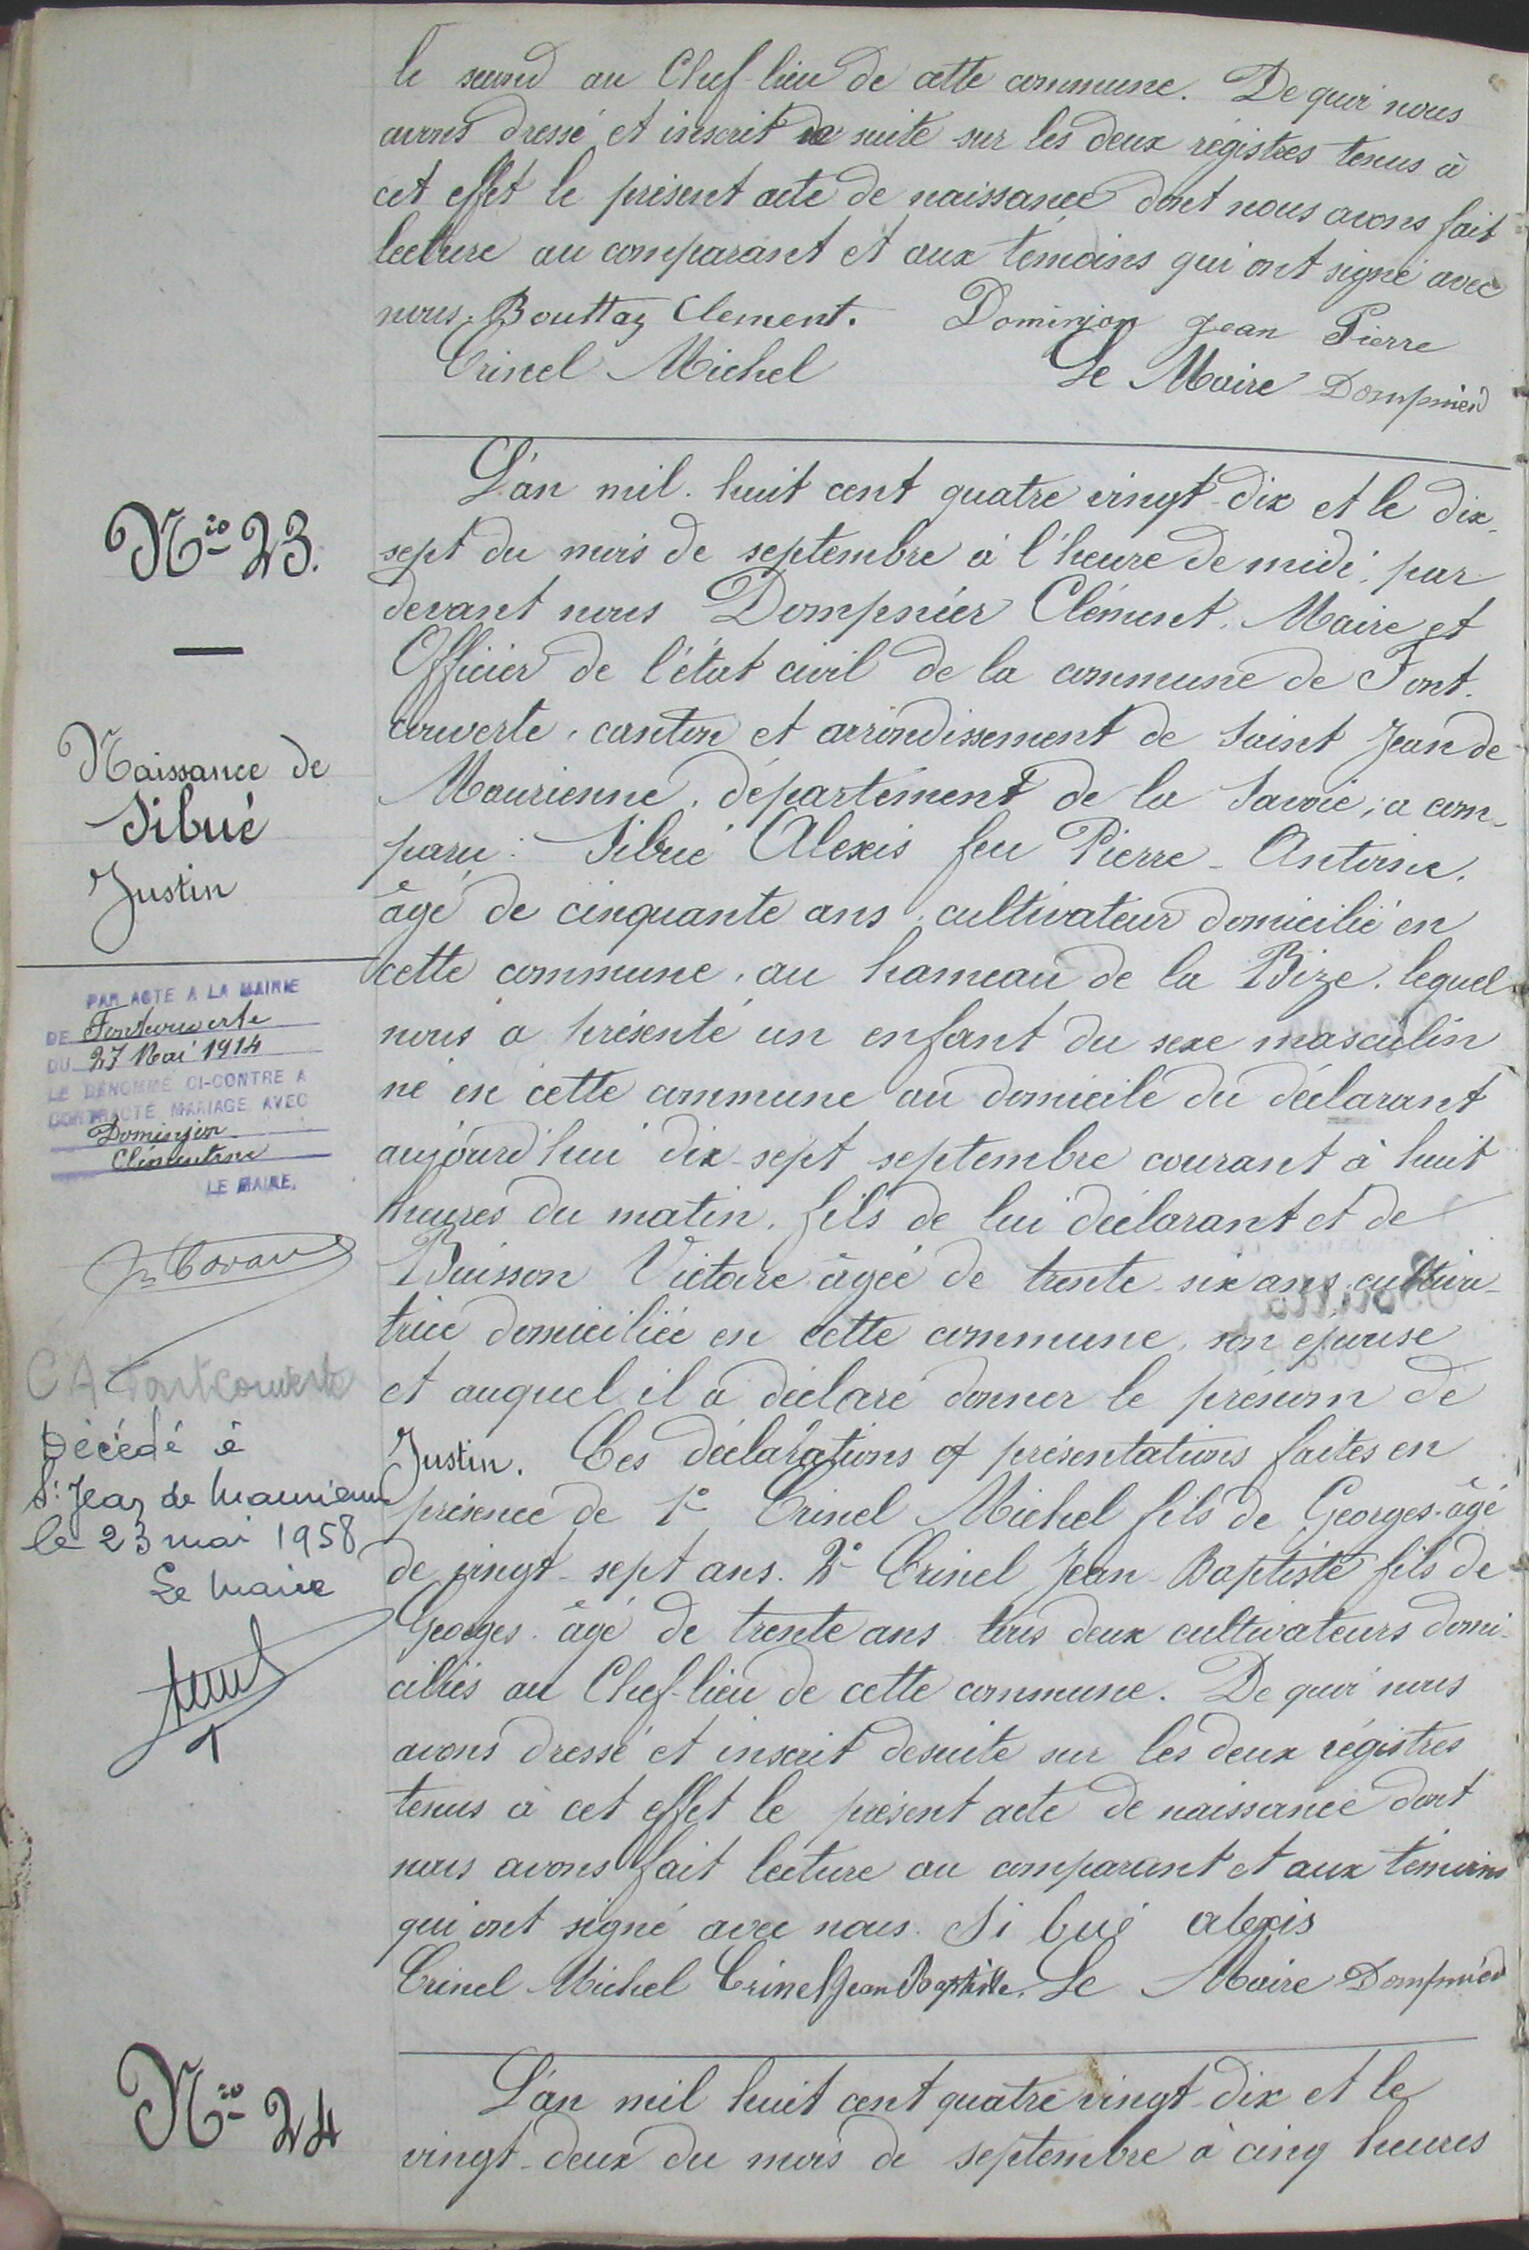 le second au Chef-lieu de cette commune. De quoi nous
avons dressé et inscrit de suite sur les deux régistres tenus à
cet effet le présent acte de naissance dont nous avons fait
lecture au comparant et aux témoins qui ont signé avec
nous. Bouttaz Clement. Dominjon Jean Pierre
Crinel Michel Le Maire Dompnier
Nio 23.
Naissance de
Sibué
Justin
L'an mil huit cent quatre vingt-dix et le dix-
sept du mois de septembre à l'heure de midi, par
devant nous Dompnier Clément, Maire et
Officier de l'état civil de la commune de Font-
couverte, canton et arrondissement de Saint Jean de
Maurienne, département de la Savoie, a com-
paru : Sibué Alexis feu Pierre-Antoine,
âgé de cinquante ans, cultivateur domicilié en
cette commune, au hameau de la Bize, lequel
nous a présenté un enfant du sexe masculin
né en cette commune au domicile du déclarant
aujourd'hui dix-sept septembre courant à huit
heures du matin, fils de lui déclarant et de
Buisson Victoire âgée de trente-six ans, cultiva-
trice domiciliée en cette commune, son épouse
et auquel il a déclaré donner le prénom de
Justin. Ces déclarations et présentations faites en
présence de 1° Crinel Michel fils de Georges âgé
de vingt-sept ans. 2° Crinel Jean-Baptiste fils de
Georges âgé de trente ans tous deux cultivateurs domi-
ciliés au Chef-lieu de cette commune. De quoi nous
avons dressé et inscrit desuite sur les deux régistres
tenus à cet effet le présent acte de naissance dont
nous avons fait lecture au comparant et aux témoins
qui ont signé avec nous. Si bué alexis
Crinel Michel Crinel Jean Baptiste. Le Maire Dompnier
PAR ACTE A LA MAIRIE
DE Fontcouverte
DU 27 Mai 1914
LE DÉNOMMÉ CI-CONTRE A
CONTRACTÉ MARIAGE AVEC
Dominjon
Clémentine
LE MAIRE,
CA Fontcouverte
Décédé à
St Jean de Maurienne
le 23 mai 1958
Le Maire
Nio 24
L'an mil huit cent quatre vingt-dix et le
vingt-deux du mois de septembre à cinq heures